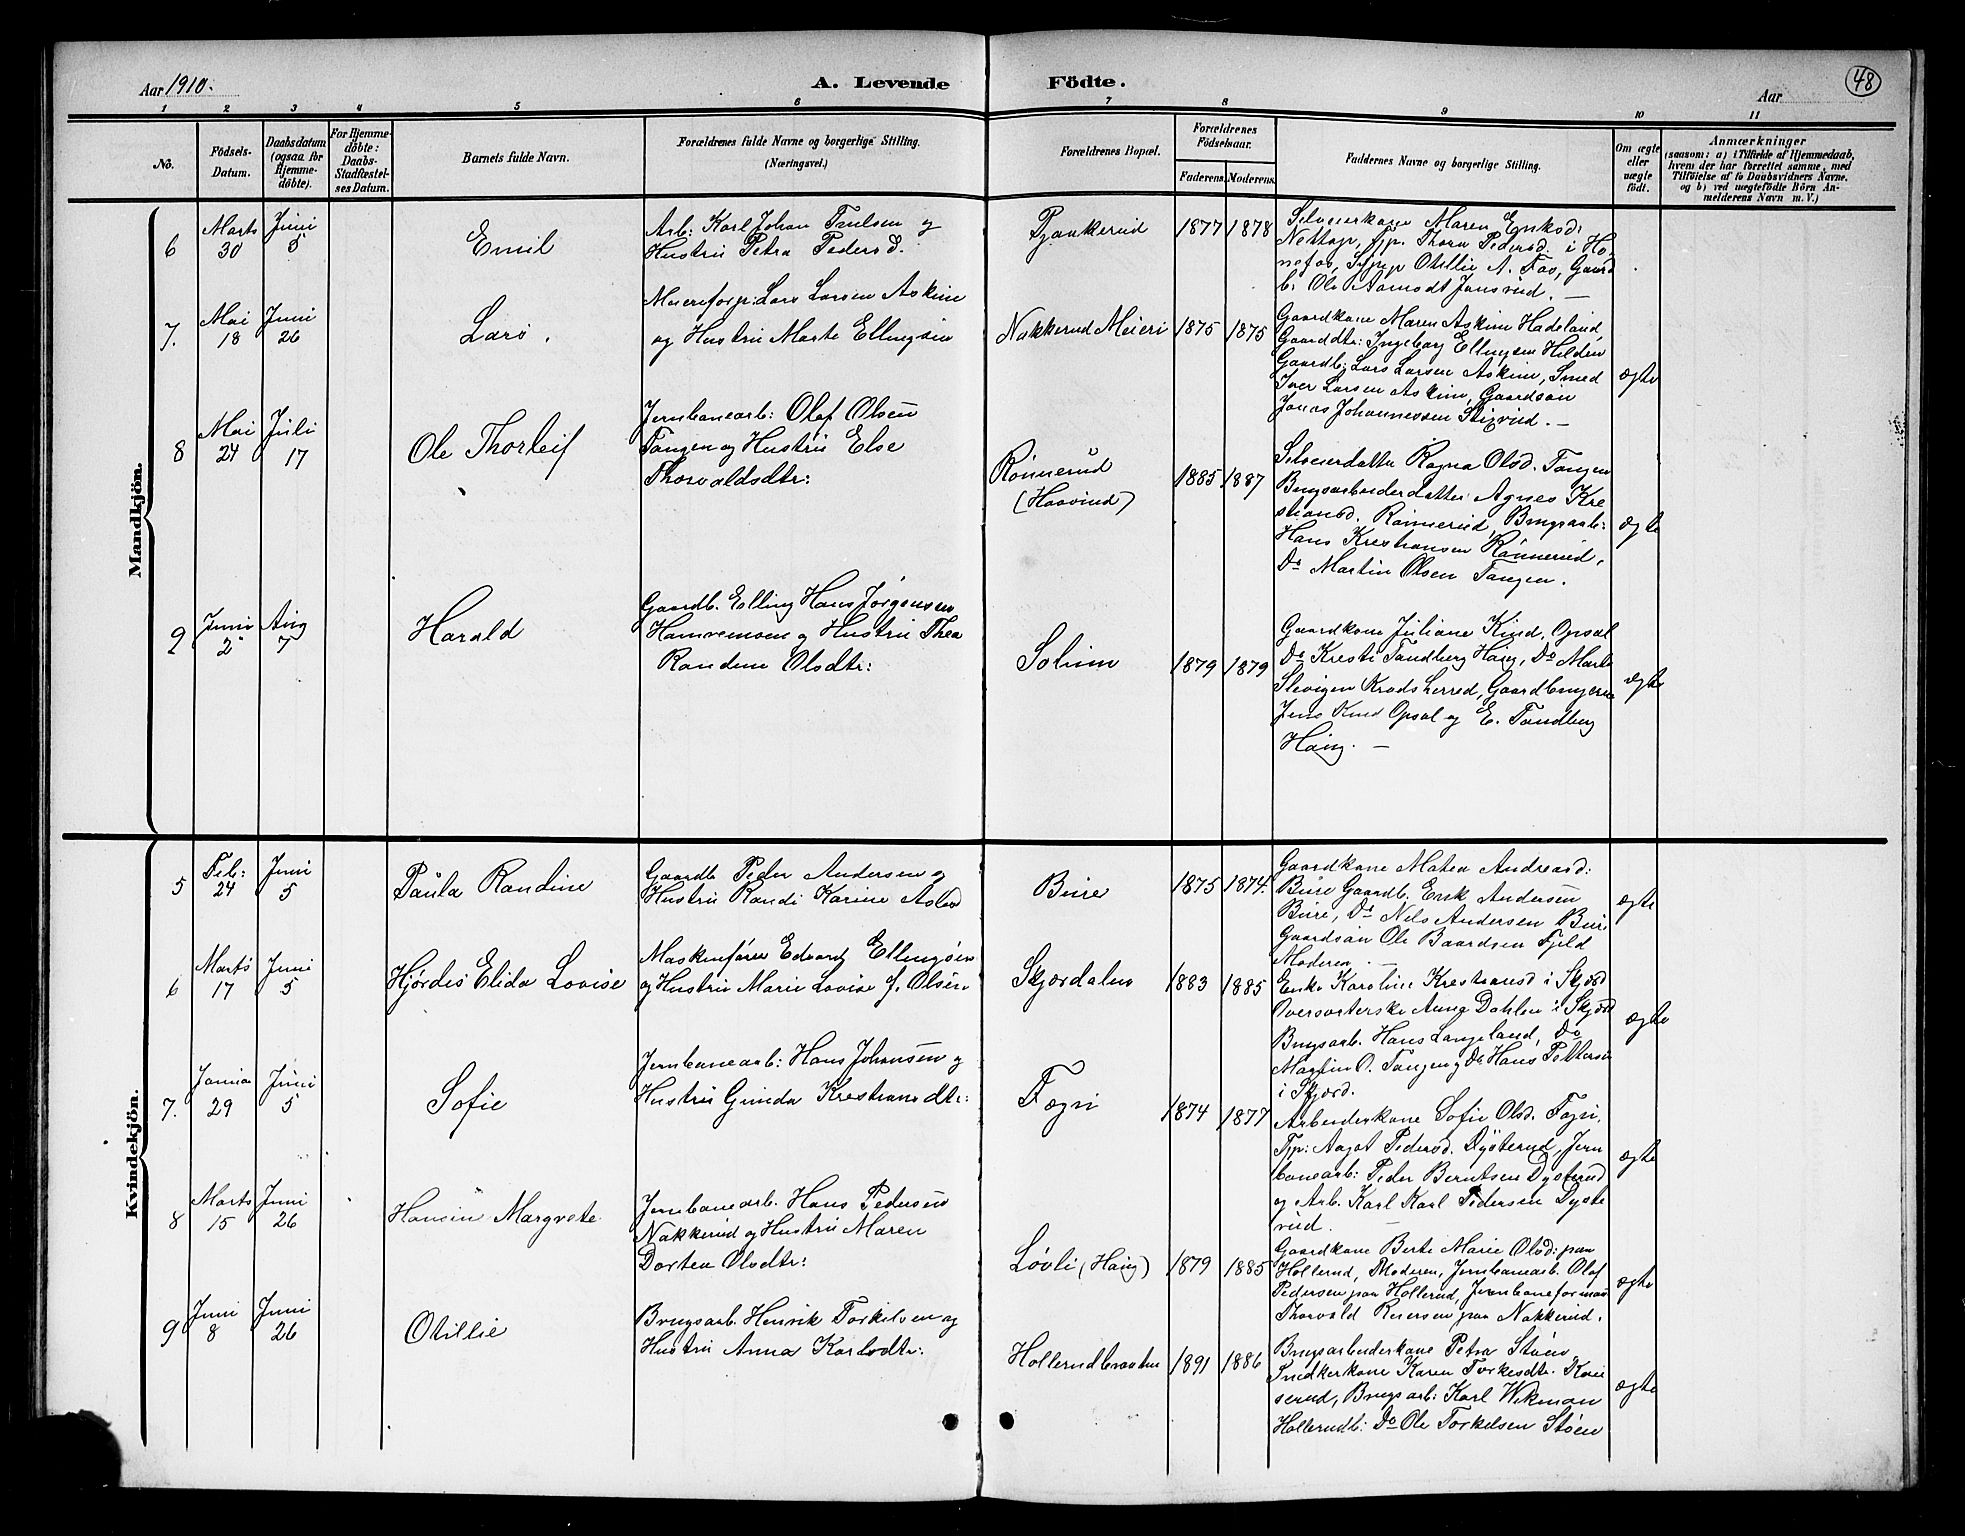 Aar 1910.
A. Levende Födte.
Aar
48
1 2 3 4 5 6 7 8 9 10 11
Nô.
Födsels-Datum.
Daabsdatum (ogsaa for Hjemme-döbte).
For Hjemme-döbte: Daabs-Stadfæstel-ses Datum.
Barnets fulde Navn.
Forældrenes fulde Navne og borgerlige Stilling.
(Næringsvei.)
Forældrenes Bopæl.
Forældrenes Födselsaar.
Faderens. Moderens.
Faddernes Navne og borgerlige Stilling.
Om ægte eller uægte födt.
Anmærkninger
(saasom: a) i Tilfælde af Hjemmedaab,
hvem der har forrettet samme, med
Tilföielse af to Daabsvidners Navne.
og b) ved uægtefödte Börn An-
melderens Navn m. V.)
Mandkjön.
6
Marts 30
Juni 5
Emil
Arb: Karl Johan Paulsen og
Hustru Petra Pedersd.
1877 1878
Selveierkone Maren Eriksd:
Thora Pedersd. i Hö-
nefos, Otillie A. Fos, Gaard
b. Ole Aamodt Jonsrud. —
7.
Mai 18
Juni 26
Lars.
Meieriforp: Lars Larsen Askim
og Hustru Marte Ellingsen
Nakkerud Meieri
1875 1875
Gaardkone Maren Askim Hadeland,
Gaarddtr: Ingeborg Ellingsen Hilden
Gaardb: Lars Larsen Askim, Smed
Iver Larsen Askim, Gaardsön
Jonas Johannessen Stixrud. —
ægte
8
Mai 24
Juli 17
Ole Thorleif
Jernbanearb: Olaf Olsen
Tangen og Hustru Else
Thorvaldsdtr:
Rönnerud
(Haavrud)
1885 1887
Selveierdatter Ragna Olsd. Tangen
Brugsarbeiderdatter Agnes Kre
stiansd. Rönnerud, Brugsarb:
Hans Krestiansen Rönnerud,
Do Martin Olsen Tangen.
ægte
9
Juni 2
Aug 7
Harald
Gaardb. Elling Hans Jörgensen
og Hustru Thea
Randine Olsdtr:
Solum
1879 1879
Gaardkone Juliane Kind, Opsal
Do Kresti Tandberg Haug, Do Marte
Slevigen Krødsherred, Gaardbrugerne
Jens Kind Opsal og E. Tandberg
Haug. —
ægte
Kvindekjön.
5
Feb: 24
Juni 5
Paula Randine
Gaardb Peder Andersen og
Hustru Randi Karine Aslesd
Bure
1875 1874.
Gaardkone Matea Andreasd:
Bure Gaardb. Erik Andersen
Bure, Do Nils Andersen Bure
Gaardsön Ole Baardsen Fjeld
Moderen. —
ægte
6
Marts 17
Juni 5
Hjördis Elida Lovise
Maskinförer Edvard Ellingsen
og Hustru Marie Lovise f. Olsen
Skjærdalen
1883 1885
Enke Karoline Krestiansd i Skjærd
Oversorterske Anna Dahlen i Skjærd
Brugsarb. Hans Langeland, Do
Martin O. Tangen, Do Hans Pettersen
i Skjærd.
ægte
7.
Janua 29
Juni 5
Sofie
Jernbanearb: Hans Johansen og
Hustru Gunda Krestiansdtr:
Fagri
1874 1877
Arbeiderkone Sofie Olsd. Fagri,
Tjp: Aagot Pedersd. Dysterud, Jern
banearb: Peder Berntsen Dysterud
og Arb. Karl Karl Pedersen Dyste
rud. —
ægte
8
Marts 15
Juni 26
Hansin Margrete
Jernbanearb. Hans Pedersen
Nakkerud og Hustru Maren
Dortea Olsdtr:
Lövli (Haug)
1879 1885
Gaardkone Berte Marie Olsd: paa
Hollerud, Moderen, Jernbanearb. Olaf
Pedersen paa Hollerud, Jernbaneformand
Thorvald Reiersen paa Nakkerud.
ægte
9
Juni 8
Juni 26
Otillie
Brugsarb. Henrik Torkilsen og
Hustru Anna Karlsdtr:
Hollerudbraaten
1891 1886
Brugsarbeiderkone Petra Stöen
Snedkerkone Karen Torkesdtr.
serud, Brugsarb: Karl Wikman
Hollerudb: Do Ole Torkelsen Stöen
ægte